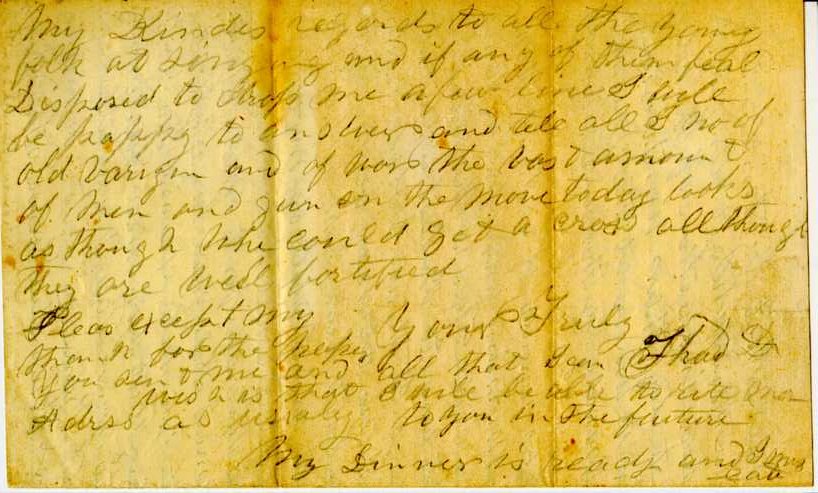 My Kindes regards to all the young
folk at singing and if any of them feal
Disposed to drop me a few lines I will
be happy to answer and tell all I no of
old varigin and of wors the vast amount
of men and gun on the move today looks
as though whe could get a cross all though
they are well fortified
Pleas except my Yours Truly
thank for the paper Thad
You sent me and all that I can
wish is that I will be able to rite
Adrss as usualy to you in the future
My Dinner is ready and I mus
eat